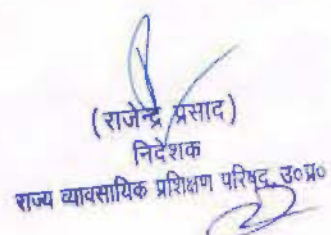 (राजेन्द्र प्रसाद)
निदेशक
राज्य व्यावसायिक प्रशिक्षण परिषद्, उ०प्र०